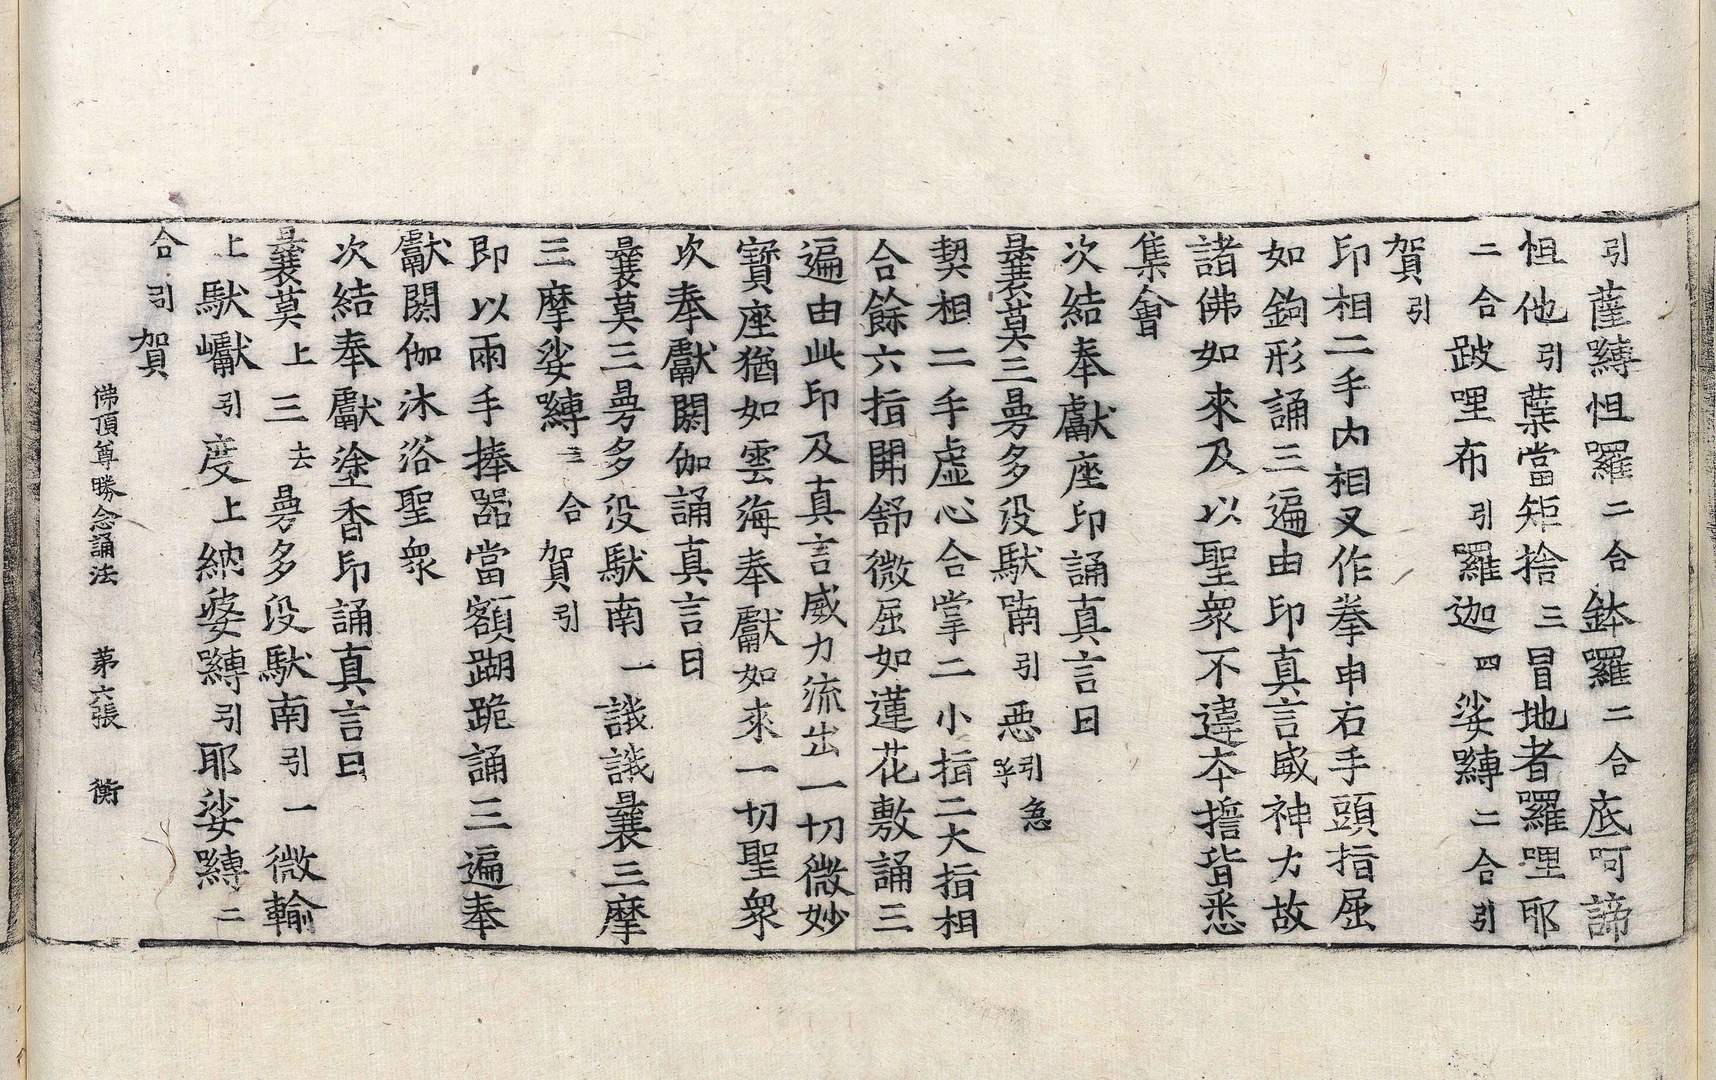 引薩嚩怛羅二合鉢羅二合底呵諦
怛他引蘖當矩捨三冒地者羅哩耶
二合跛哩布引羅迦四娑嚩二合引
賀引
印相二手內相叉作拳申右手頭指屈
如鉤形誦三遍由印真言威神力故
諸佛如來及以聖衆不違本擔皆悉
集會
次結奉獻座印誦真言曰
曩莫三曼多没馱喃引惡引急呼
契相二手虛心合掌二小指二大指相
合餘六指開舒微屈如蓮花敷誦三
遍由此印及真言威力流出一切微妙
寶座猶如雲海奉獻如來一切聖衆
次奉獻閼伽誦真言曰
曩莫三曼多没馱南一誐誐曩三摩
三摩娑嚩二合賀引
即以兩手捧器當額䠒跪誦三遍奉
獻閼伽沐浴聖衆
次結奉獻塗香印誦真言曰
曩莫上三去曼多没馱南引一微輸
上馱巘引度上納婆嚩引耶娑嚩二
合引賀
佛頂尊勝念誦法 第六張 衡